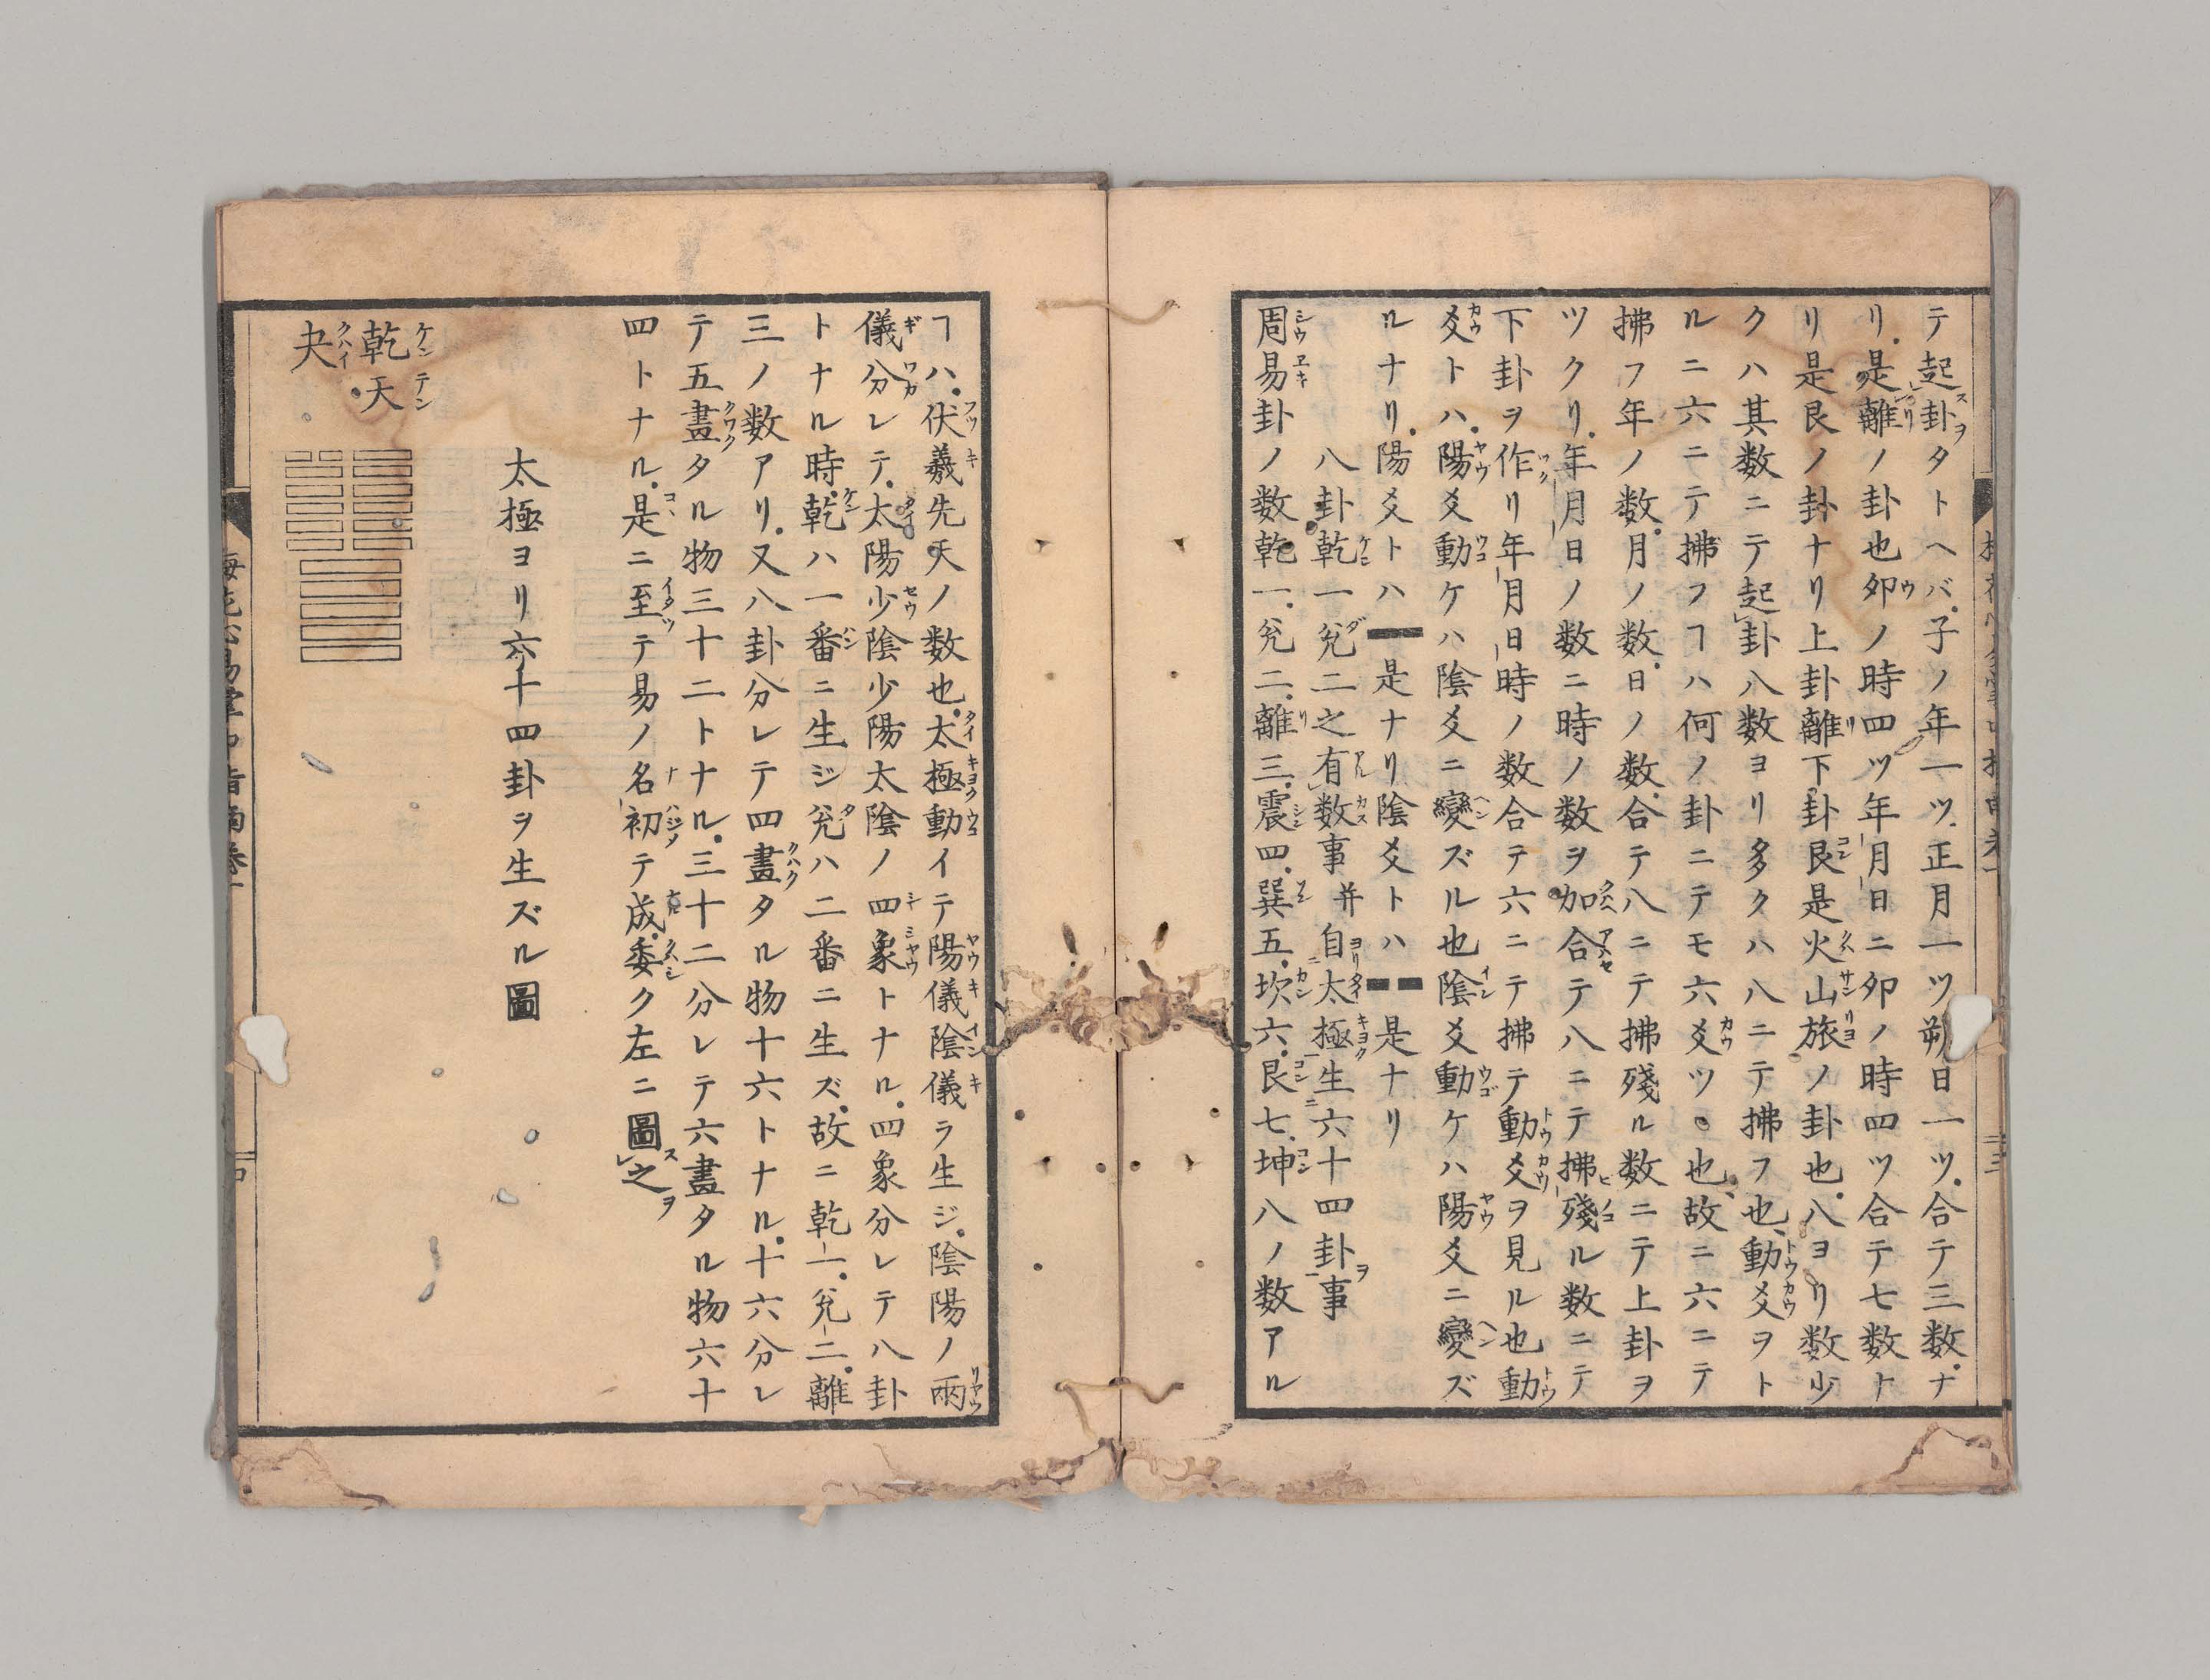 テ起卦タトヘバ子ノ年一ツ正月一ツ朔日一ツ合テ三数ナ
リ是離ノ卦也夘ノ時四ツ年月日ニ夘ノ時四ツ合テ七数ト
リ是艮ノ卦ナリ上卦離下卦艮是火山旅ノ卦也八ヨリ数少
クハ其数ニテ起卦八数ヨリ多クハ八ニテ拂フ也動爻ヲト
ルニ六ニテ拂フヿハ何ノ卦ニテモ六爻ツヽ也故ニ六ニテ
拂フ年ノ数月ノ数日ノ数合テ八ニテ拂残ル数ニテ上卦ヲ
ツクリ年月日ノ数ニ時ノ数ヲ加合テ八ニテ拂残ル数ニテ
下卦ヲ作リ年月日時ノ数合テ六ニテ拂テ動爻ヲ見ル也動
爻トハ陽爻動ケハ陰爻ニ變ズル也陰爻動ケハ陽爻ニ變ズ
ルナリ陽爻トハ⚊是ナリ陰爻トハ⚋是ナリ
八卦乾一兊二之有数事并自太極生六十四卦事
周易卦ノ数乾一兊二離三震四巽五坎六艮七坤八ノ数アル
ヿハ伏羲先天ノ数也太極動イテ陽儀陰儀ラ生ジ陰陽ノ兩
儀分レテ太陽少陰少陽太陰ノ四象トナル四象分レテ八卦
トナル時乾ハ一番ニ生ジ兊ハ二番ニ生ズ故ニ乾一兊二離
三ノ数アリ又八卦分レテ四畫タル物十六トナル十六分レ
テ五畫タル物三十二トナル三十二分レテ六畫タル物六十
四トナル是ニ至テ易ノ名初テ成委ク左ニ圖之
太極ヨリ六十四卦ヲ生ズル圖
乾天
夬